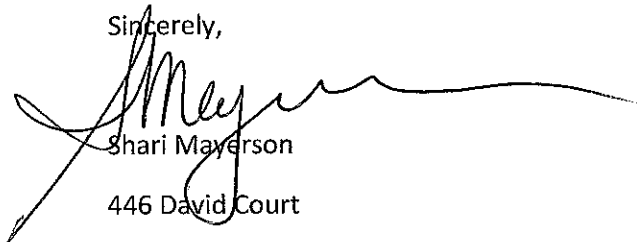 Sincerely,
Shari Mayerson
446 David Court